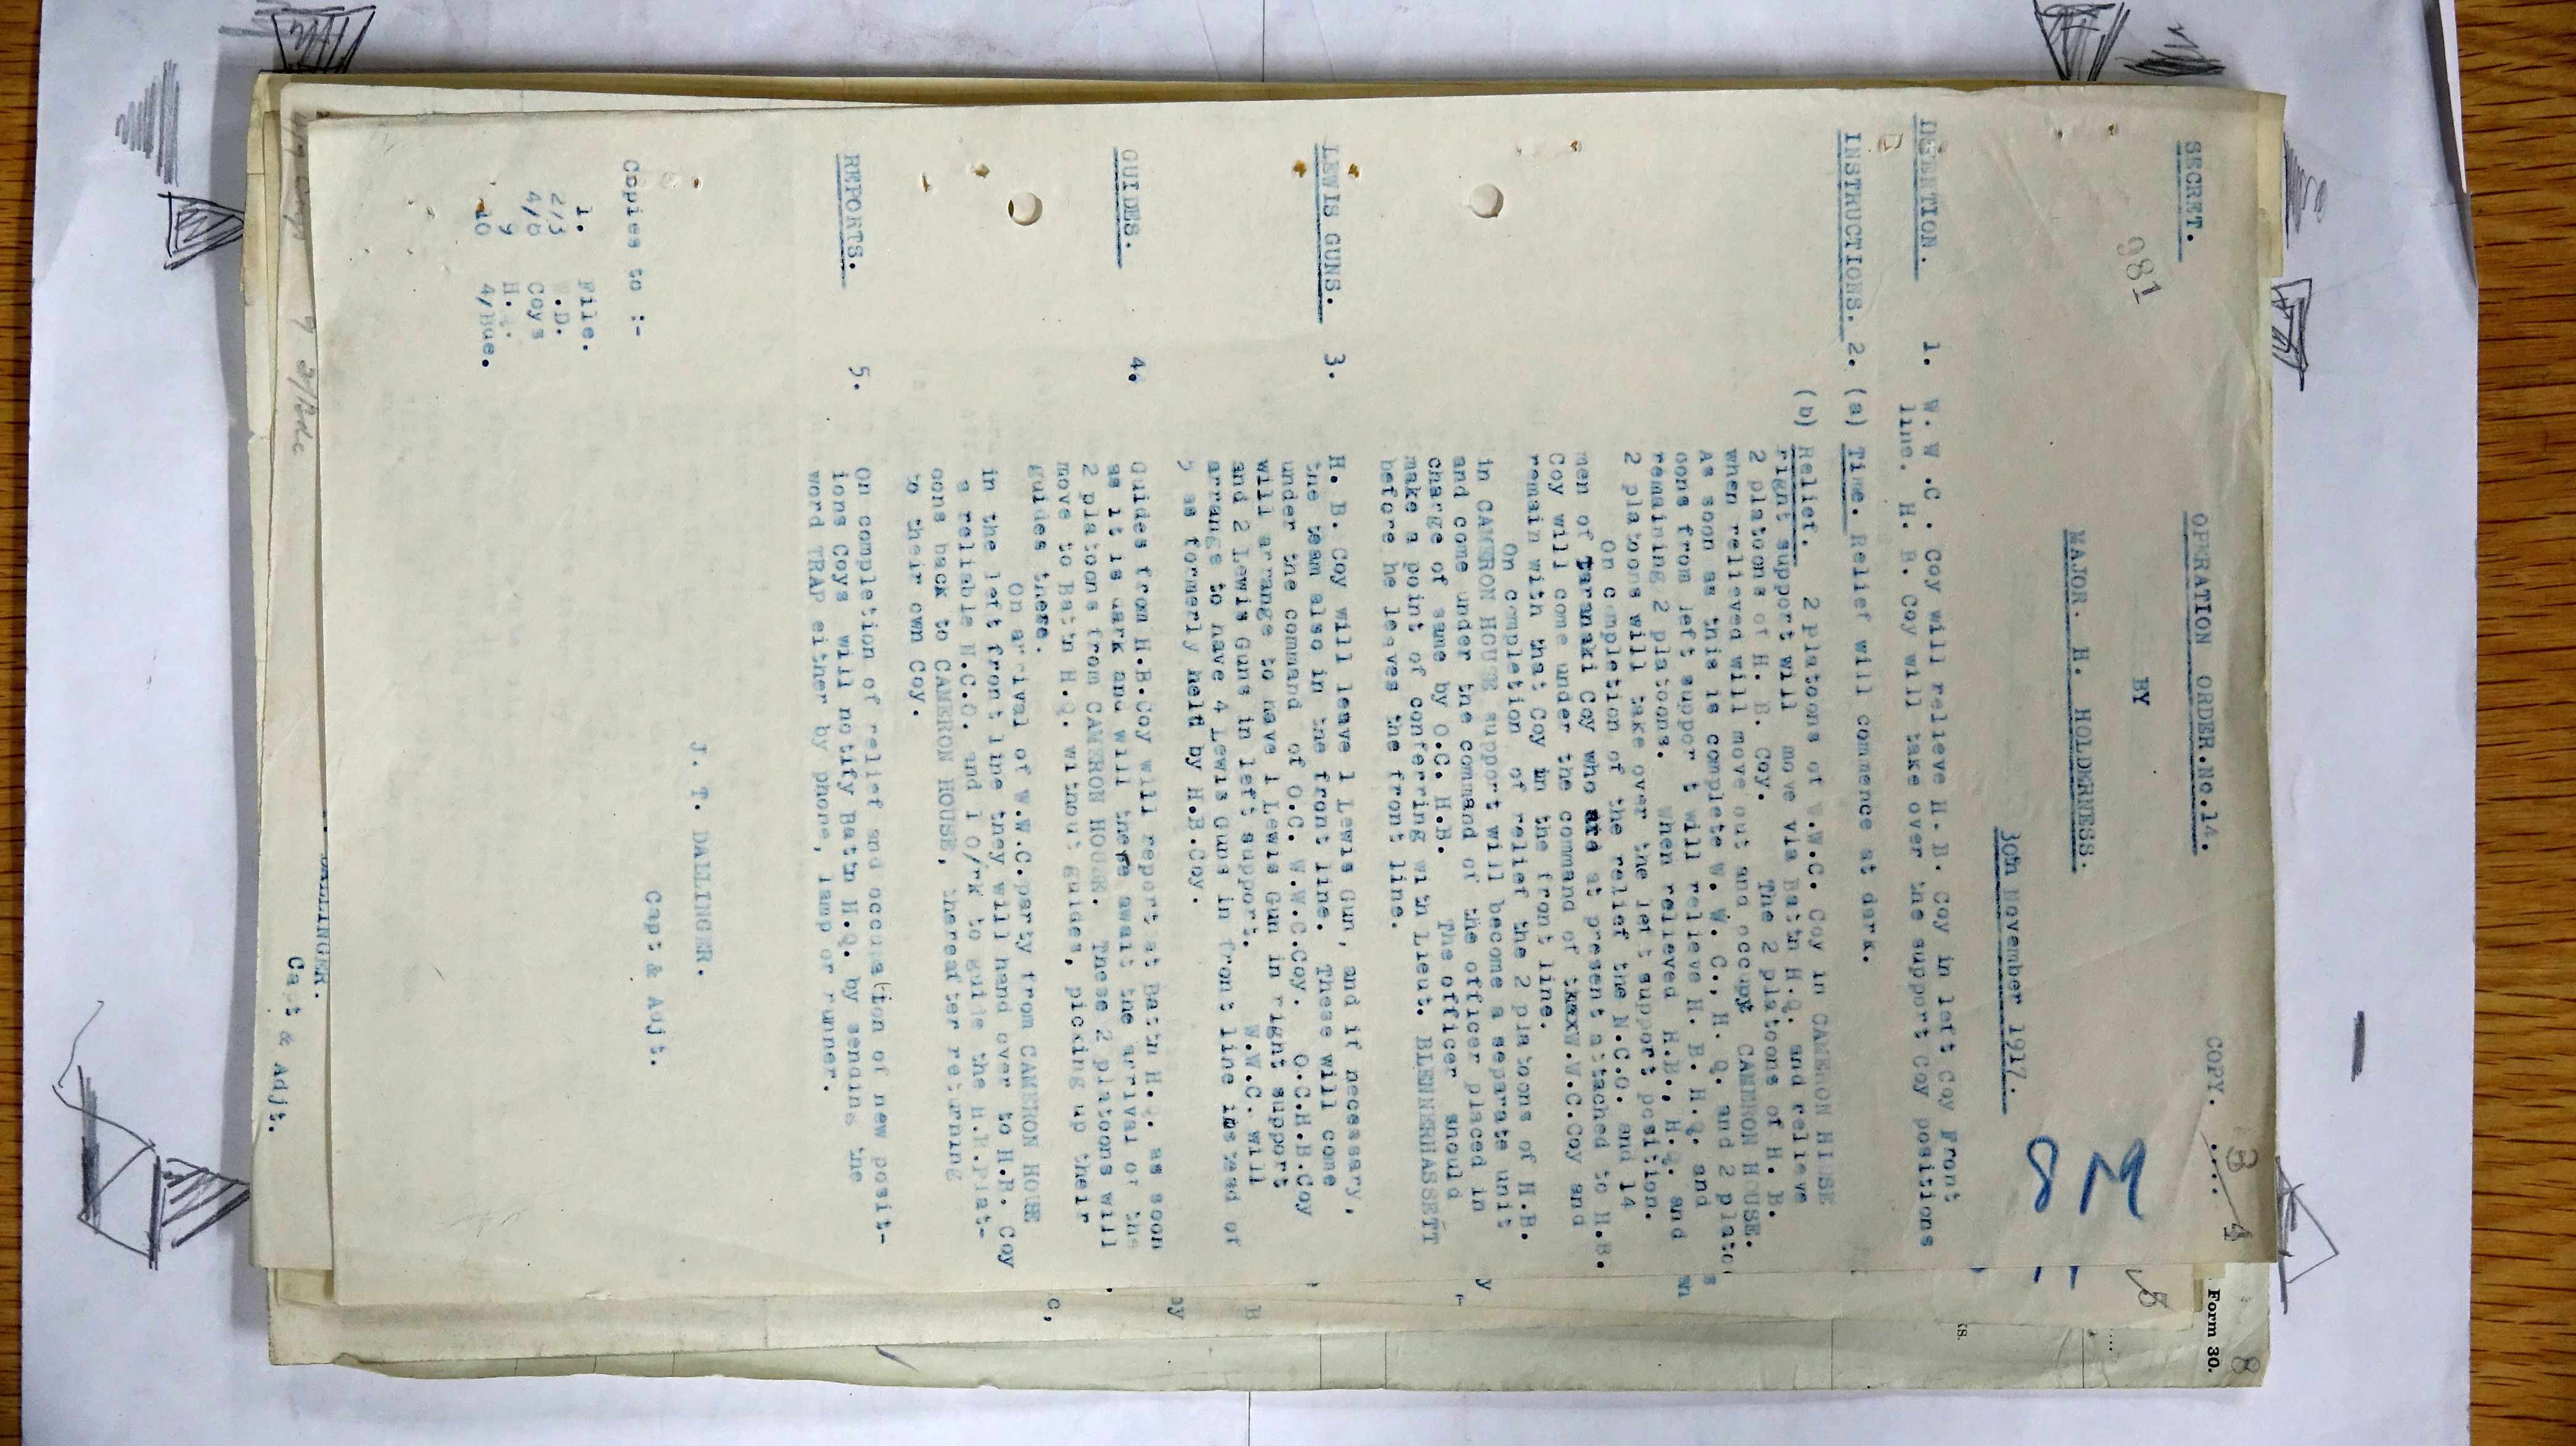 SECRET.
COPY. .... 3
4
981
OPERATION ORDER.No.14.
BY
8M
MAJOR. H. HOLDERNESS.
30th November 1917.
INTENTION. 1. W.W.C. Coy will relieve H.B. Coy in left Coy Front
line. H.B. Coy will take over the support Coy positions
INSTRUCTIONS. 2. (a) Time. Relief will commence at dark.
(b) Relief. 2 platoons of W.W.C. Coy in CAMERON HOUSE
right support will move via Battn H.Q. and relieve
2 platoons of H.B. Coy. The 2 platoons of H.B.
when relieved will move out and occupy CAMERON HOUSE.
As soon as this is complete W.W.C., H.Q. and 2 plato
oons from left support will relieve H.B. H.Q. and
remaining 2 platoons. When relieved H.B., H.Q. and
2 platoons will take over the left support position.
On completion of the relief the N.C.O. and 14
men of Taranaki Coy who are at present attached to H.B.
Coy will come under the command of W.W.C.Coy and
remain with that Coy in the front line.
On completion of relief the 2 platoons of H.B.
in CAMERON HOUSE support will become a separate unit
and come under the command of the officer placed in
charge of same by O.C. H.B. The officer should
make a point of conferring with Lieut. BLENNERHASSETT
before he leaves the front line.
LEWIS GUNS. 3. H.B. Coy will leave 1 Lewis Gun, and if necessary,
the team also in the front line. These will come
under the command of O.C. W.W.C.Coy. O.C.H.B.Coy
will arrange to have 1 Lewis Gun in right support
and 2 Lewis Guns in left support. W.W.C. will
arrange to have 4 Lewis Guns in front line instead of
as formerly held by H.B.Coy.
GUIDES. 4. Guides from H.B.Coy will report at Battn H.Q. as soon
as it is dark and will there await the arrival of the
2 platoons from CAMERON HOUSE. These 2 platoons will
move to Battn H.Q. without guides, picking up their
guides there.
On arrival of W.W.C.party from CAMERON HOUSE
in the left front line they will hand over to H.B. Coy
a reliable N.C.O. and 1 O/rk to guide the H.B.Plat-
oons back to CAMERON HOUSE, thereafter returning
to their own Coy.
REPORTS. 5. On completion of relief and occupation of new posit-
ions Coys will notify Battn H.Q. by sending the
word TRAP either by phone, lamp or runner.
J. T. DALLINGER.
Capt & Adjt.
Copies to :-
1. File.
2/3 W.D.
4/8 Coys
9 H.Q.
10 4/Bde.
DALLINGER.
Capt & Adjt.
Form 30.
8
5